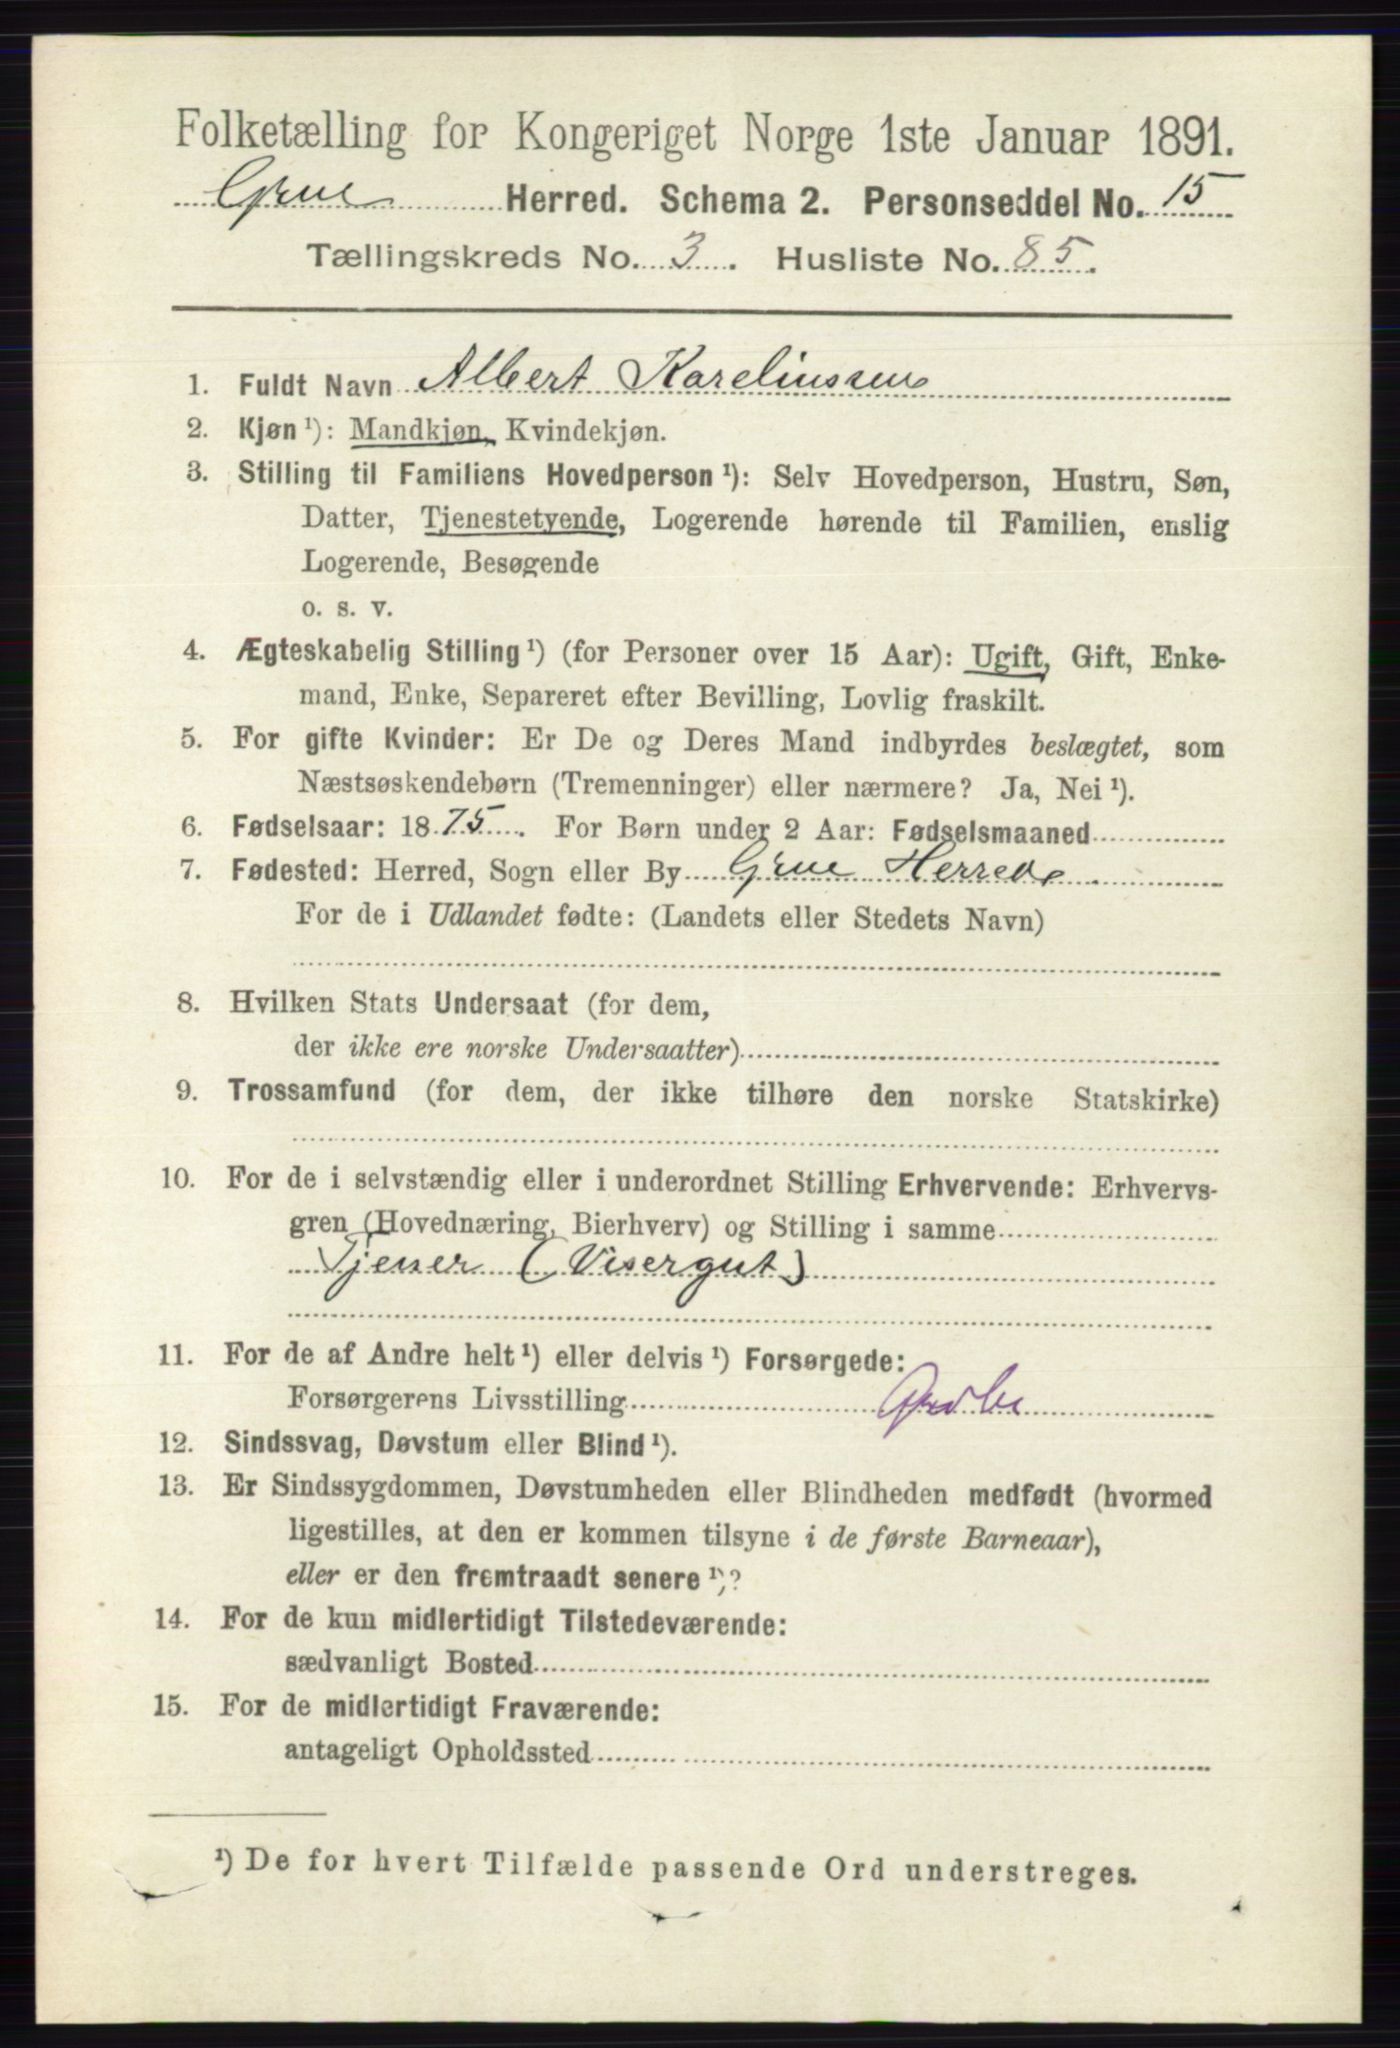 Folketælling for Kongeriget Norge 1ste Januar 1891.
Grue Herred. Schema 2. Personseddel No. 15
Tællingskreds No. 3. Husliste No. 85.
1. Fuldt Navn Albert Karelinssen
2. Kjøn ¹): Mandkjøn, Kvindekjøn.
3. Stilling til Familiens Hovedperson ¹): Selv Hovedperson, Hustru, Søn,
Datter, Tjenestetyende, Logerende hørende til Familien, enslig
Logerende, Besøgende
o. s. v.
4. Ægteskabelig Stilling ¹) (for Personer over 15 Aar): Ugift, Gift, Enke-
mand, Enke, Separeret efter Bevilling, Lovlig fraskilt.
5. For gifte Kvinder: Er De og Deres Mand indbyrdes beslægtet, som
Næstsøskendebørn (Tremenninger) eller nærmere? Ja, Nei ¹).
6. Fødselsaar: 1875. For Børn under 2 Aar: Fødselsmaaned
7. Fødested: Herred, Sogn eller By Grue Herred.
For de i Udlandet fødte: (Landets eller Stedets Navn)
8. Hvilken Stats Undersaat (for dem,
der ikke ere norske Undersaatter)
9. Trossamfund (for dem, der ikke tilhøre den norske Statskirke)
10. For de i selvstændig eller i underordnet Stilling Erhvervende: Erhvervs-
gren (Hovednæring, Bierhverv) og Stilling i samme
Tjener (Visergut)
11. For de af Andre helt ¹) eller delvis ¹) Forsørgede:
Forsørgerens Livsstilling
12. Sindssvag, Døvstum eller Blind ¹).
13. Er Sindssygdommen, Døvstumheden eller Blindheden medfødt (hvormed
ligestilles, at den er kommen tilsyne i de første Barneaar),
eller er den fremtraadt senere ¹)?
14. For de kun midlertidigt Tilstedeværende:
sædvanligt Bosted
15. For de midlertidigt Fraværende:
antageligt Opholdssted
¹) De for hvert Tilfælde passende Ord understreges.